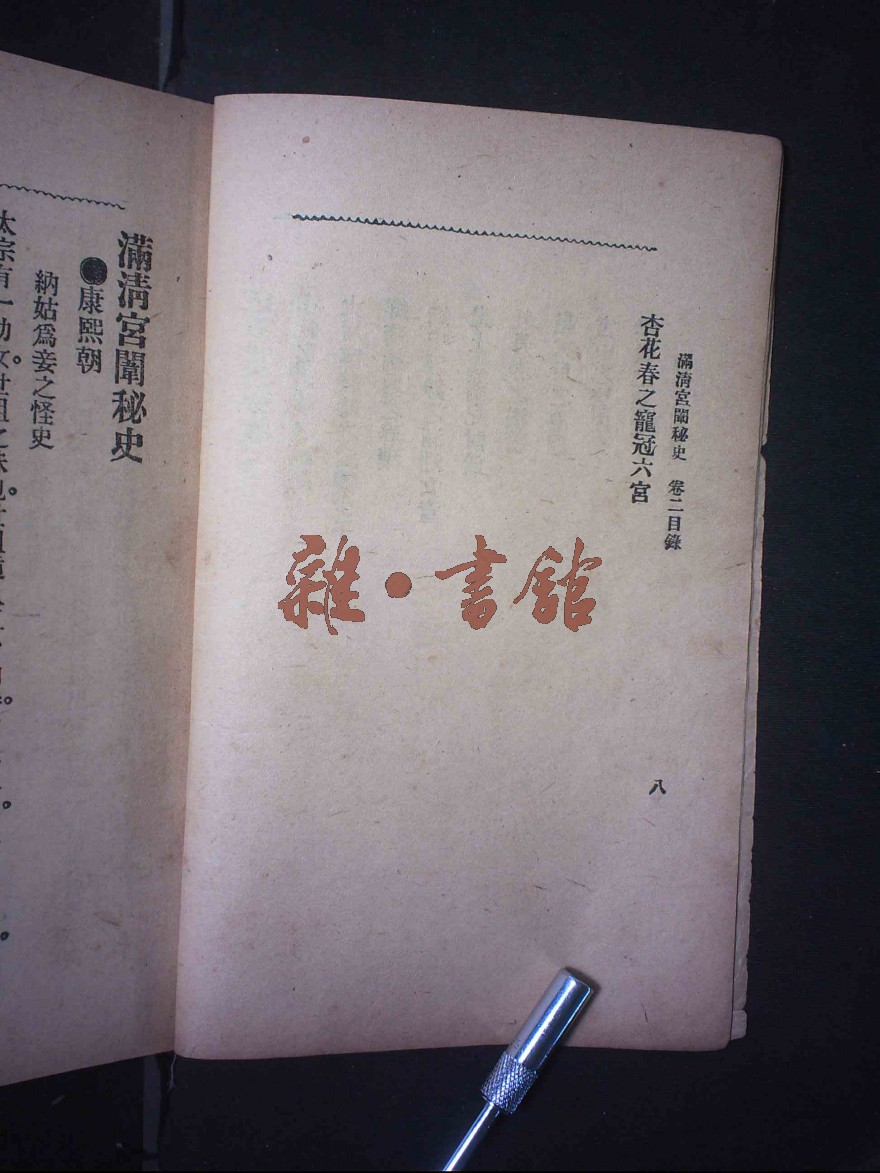 滿清宮闈秘史　卷二目錄
杏花春之寵冠六宮
八
雜•書館
滿淸宮闈秘史
●康熙朝
納姑爲妾之怪史
太宗有一幼女世祖之妹